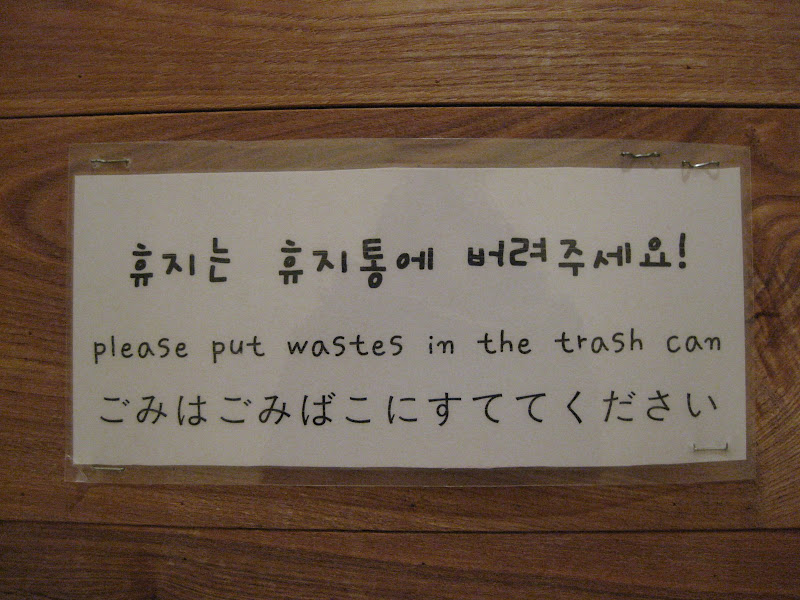 휴지는 휴지통에 버려주세요!
please put wastes in the trash can
ごみはごみばこにすててください